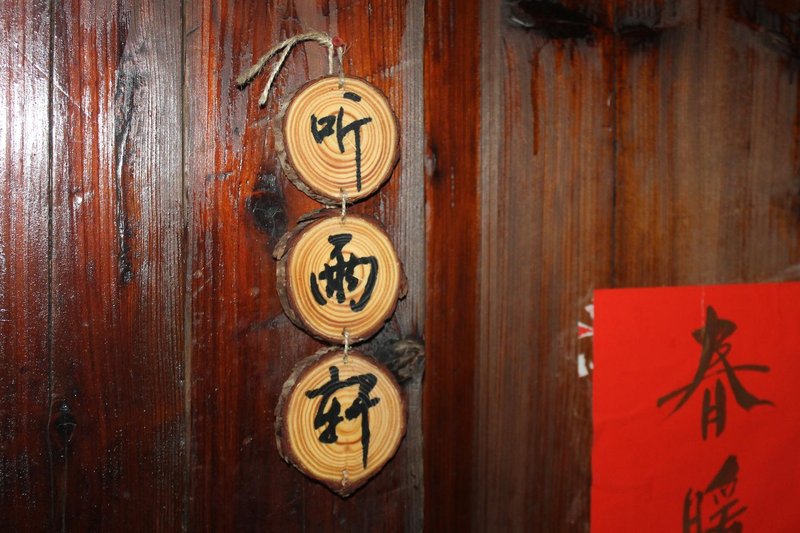 听雨轩
春暖